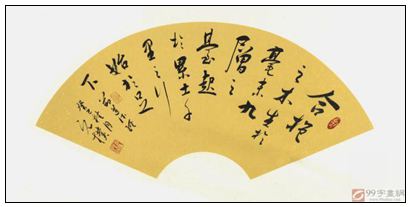 合抱
之木生於
毫末九
層之
臺起
於累土千
里之行
始於足
下
99字畫網